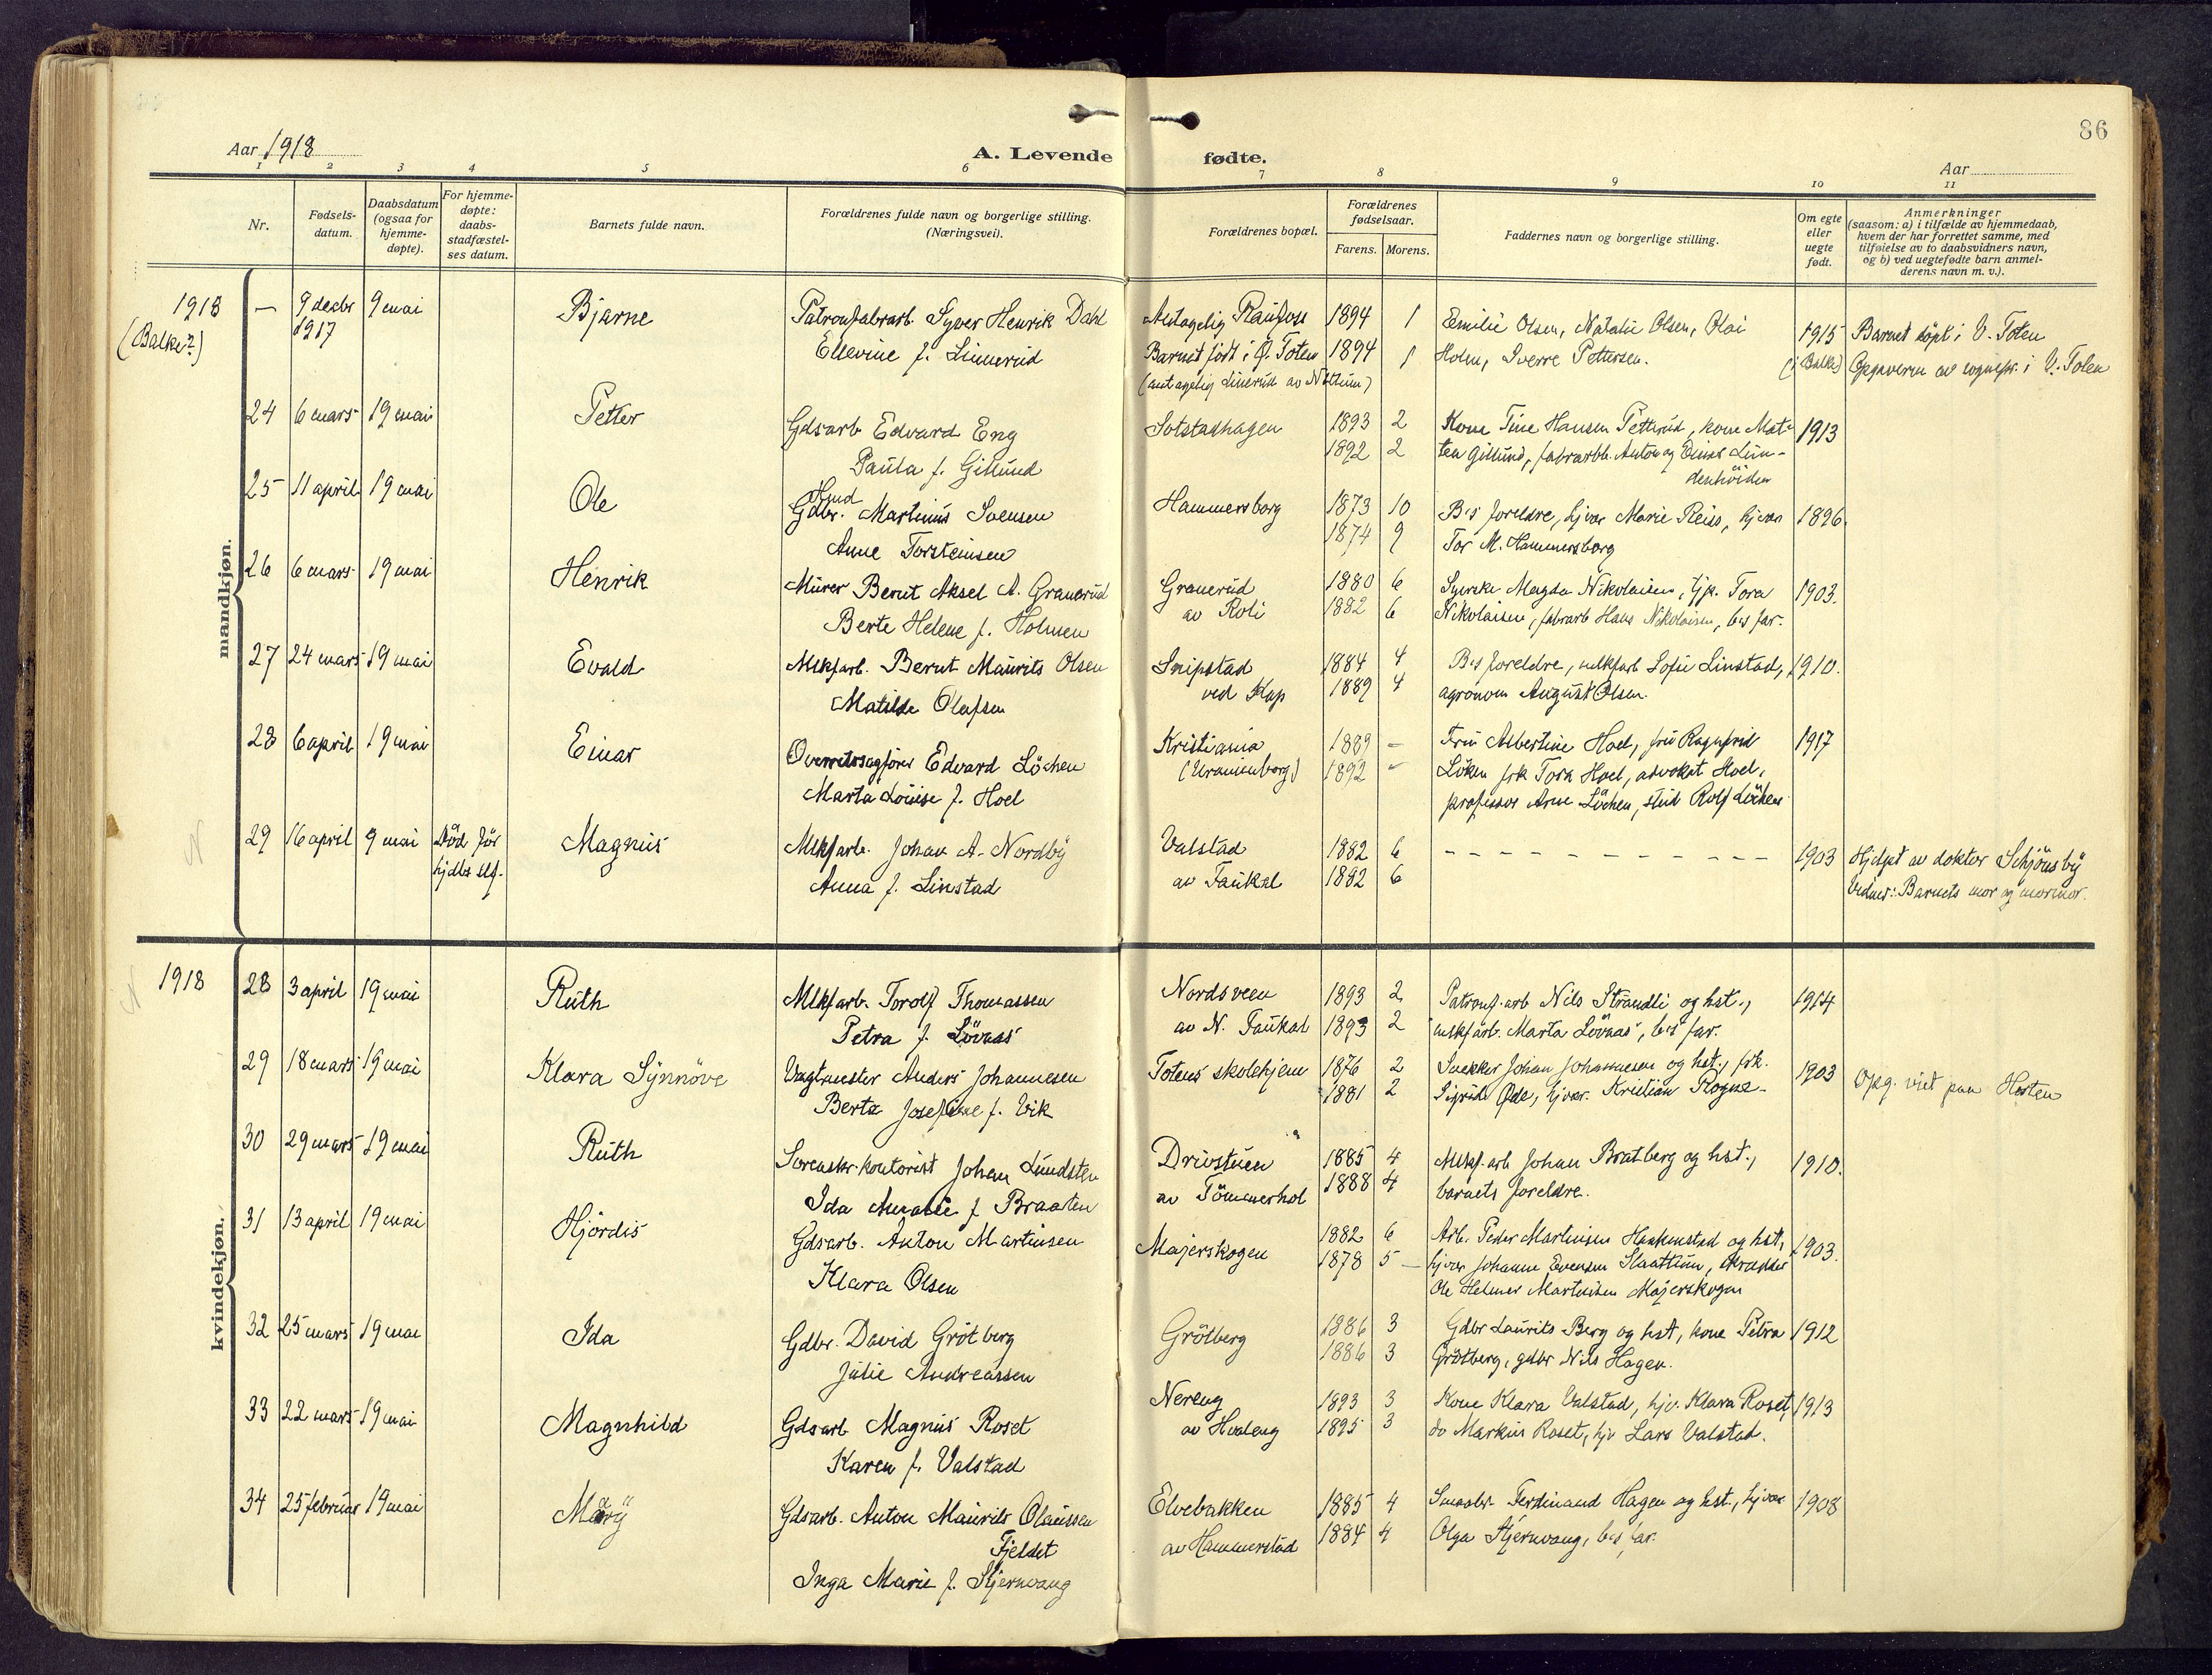 86
Aar 1918
A. Levende fødte.
Aar
1 2 3 4 5 6 7 8 9 10 11
Nr.
Fødsels-
datum.
Daabsdatum
(ogsaa for
hjemme-
døpte).
For hjemme-
døpte:
daabs-
stadfæstel-
ses datum.
Barnets fulde navn.
Forældrenes fulde navn og borgerlige stilling.
(Næringsvei).
Forældrenes bopæl.
Forældrenes
fødselsaar.
Farens. Morens.
Faddernes navn og borgerlige stilling.
Om egte
eller
uegte
født.
Anmerkninger
(saasom: a) i tilfælde av hjemmedaab,
hvem der har forrettet samme, med
tilføielse av to daabsvidners navn,
og b) ved uegtefødte barn anmel-
derens navn m. v.).
mandkjøn.
1918 — 9 decbr 9 mai Bjarne Patronfabrarb. Syver Henrik Dahl Antagelig Raufoss 1894 1 Emilie Olsen, Natalie Olsen, Olai 1915 Barnet döpt i V. Toten
(Balke?) 1917 Ellevine f. Linnerud Barnet födt i Ø. Toten 1894 1 Holen, Sverre Pettersen. (i Balke) Opgaven av sognepr. i V. Toten
(antagelig Linerud av)
24 6 mars 19 mai Petter Gdsarb Edvard Eng Sotstadhagen 1893 2 Kone Tine Hansen Petterud, kone Mat- 1913
Paula f. Gillund 1892 2 tea Gillund, fabrarbb. Anton og Lin-
denhöiden
25 11 april 19 mai Ole Hmd
Gdbr. Martinius Svensen Hammersborg 1873 10 B's foreldre, hjvær Marie Reiss, hjvær 1896.
Anne Torsteinsen 1874 9 Tor M. Hammersborg
26 6 mars 19 mai Henrik Murer Bernt Aksel A. Granerud Granerud 1880 6 Syerske Magda Nikolaisen, hjp. Tora 1903.
Berte Helene f. Holmen av Roli 1882 6 Nikolaisen, fabrarb Hans Nikolaisen, b's far.
27 24 mars 19 mai Evald Mlkfarb. Bernt Maurits Olsen Snipstad 1884 4 B's foreldre, mlkfarb Sofie Linstad, 1910.
Matilde Olafsen ved Kap 1889 4 agronom August Olsen.
28 6 april 19 mai Einar Overretssagförer Edvard Löchen Kristiania 1889 – Fru Albertine Hoel, fru Ragnfrid 1917
Marta Louise f. Hoel (Uranienborg) 1892 – Löken frk Tora Hoel, advokat Hoel,
professor Arne Löchen, stud Rolf Löchen
29 16 april 9 mai Död för Magnus Mlkfarb. Johan A. Nordby Valstad 1882 6 – – – – – – – – – – – – 1903 Hjdpt av doktor Schjönsby
hjdbs stf. Anna f. Linstad av Faukal 1882 6 Vidner: Barnets mor og mormor.
kvindekjøn.
1918 28 3 april 19 mai Ruth Mlkfarb. Torolf Thomassen Nordsveen 1893 2 Patronf.arb Nils Strandli og hst., 1914
Petra f. Lövaas av N. Faukal 1893 2 mlkfarb. Marta Lövaas, b's far.
29 18 mars 19 mai Klara Synnöve Vagtmester Anders Johannesen Totens skolehjem 1876 2 Snekker Johan Johannesen og hst., frk. 1903 Opg. vist paa Hosten
Berta Josefine f. Vik 1881 2 Sigrid Øde, hjvær. Kristian Rogne
30 29 mars 19 mai Ruth Sorenskr.kontorist Johan Lundsten Drivstuen 1885 4 Mlkf.arb Johan Bratberg og hst., 1910.
Ida Amalie f Braaten av Tömmerhol 1888 4 barnets foreldre.
31 13 april 19 mai Hjördis Gdsarb. Anton Martinsen Majerskogen 1882 6 Arb. Peder Martinsen Haakenstad og hst, 1903.
Klara Olsen 1878 5 hjvær Johanne Evensen Slaattum,
Ole Helmer Martinsen Majerskogen
32 25 mars 19 mai Ida Gdbr. David Grötberg Grötberg 1886 3 Gdbr Laurits Berg og hst, kone Petra 1912
Julie Andreassen 1886 3 Grötberg, gdbr Nils Hagen.
33 22 mars 19 mai Magnhild Gdsarb Magnus Roset Nereng 1893 3 Kone Klara Valstad, hjv. Klara Roset, 1913
Karen f. Valstad av Hvaleng 1895 3 do Markus Roset, hjv Lars Valstad.
34 25 februar 19 mai Mary Gdsarb. Anton Maurits Olaussen Elvebakken 1885 4 Smaabr. Ferdinand Hagen og hst., hjvær 1908
Fjeldet av Hammerstad 1884 4 Olga Stjernvang, b's far.
Inga Marie f. Stjernvang